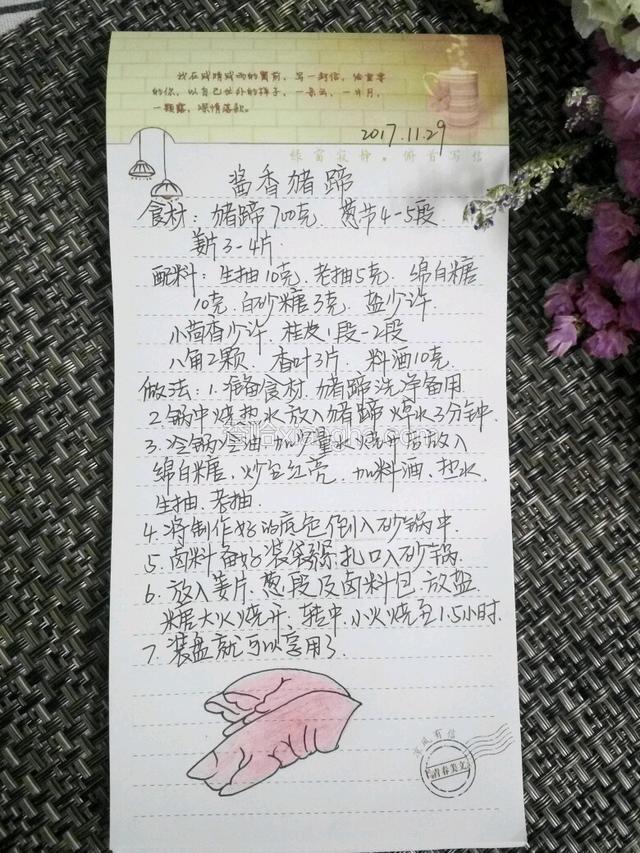 我在或晴或雨的窗前，写一封信，给重要
的你，以自己也外的样子，一朵云，一片月，
一颗露，深情落款。
2017.11.29
绿窗寂静。俯首写信
酱香猪蹄
食材：猪蹄700克 葱节4-5段
姜片3-4片
配料：生抽10克 老抽5克 绵白糖
10克 白砂糖3克 盐少许
小茴香少许 桂皮1段-2段
八角2颗 香叶3片 料酒10克
做法：1.准备食材 猪蹄洗净备用
2.锅中烧热水放入猪蹄焯水3分钟
3.冷锅冷油 加少量水烧开后放入
绵白糖、炒至红亮 加料酒、热水
生抽、老抽
4.将制作好的底色倒入砂锅中
5.卤料备好装袋 扎口入砂锅
6.放入姜片、葱段及卤料包 放盐
糖大火烧开、转中、小火烧至1.5小时.
7.装盘就可以享用了
有信
青春美文